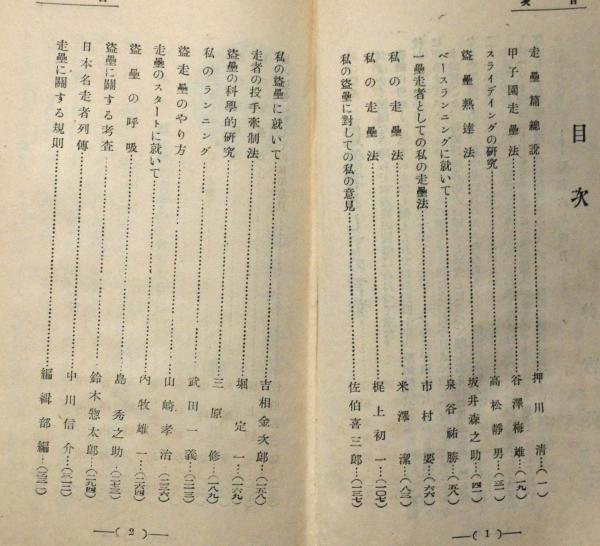 目次
走壘篇總說…押川清…(一)
甲子園走壘法…谷澤梅雄…(一九)
スライディングの研究…高松靜男…(三一)
盜壘熟達法…坂井森之助…(四一)
ベースランニングに就いて…泉谷祐勝…(五八)
一壘走者としての私の走壘法…市村要…(六六)
私の走壘法…米澤潔…(八三)
私の走壘法…梶上初一…(一〇七)
私の盜壘に對しての私の意見…佐伯喜三郎…(一三七)
—( 1 )—
私の盜壘に就いて…吉相金次郎…(一五八)
走者の投手牽制法…堀定一…(一六九)
盜壘の科學的研究…三原修…(一八九)
私のランニング…武田一義…(二二三)
盜走壘のやり方…山崎孝治…(二三六)
走壘のスタートに就いて…內牧雄一…(二六四)
盜壘の呼吸…島秀之助…(二七三)
盜壘に關する考査…鈴木惣太郎…(二九四)
日本名走者列傳…中川信介…(三一三)
走壘に關する規則…編輯部編…(三三一)
—( 2 )—